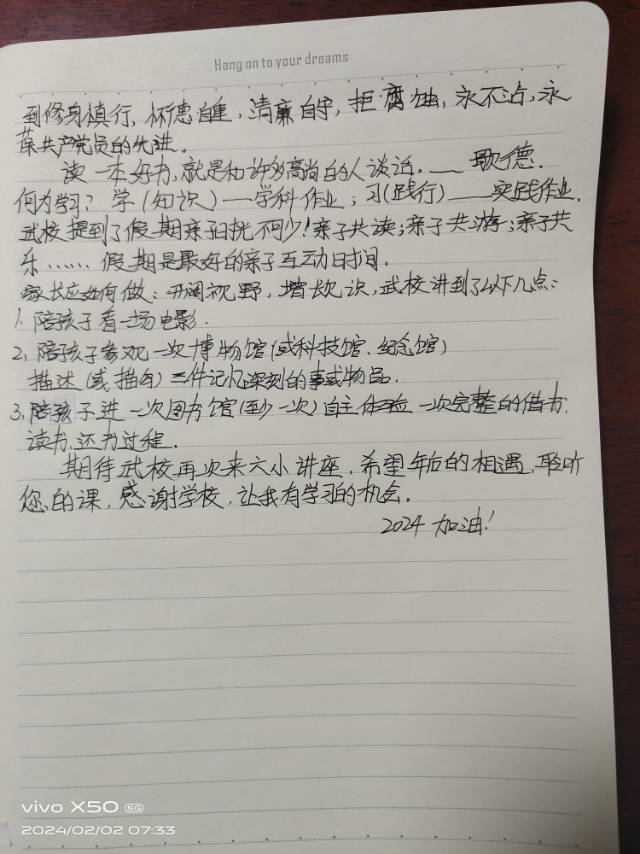 Hang on to your dreams
到修身慎行,怀德自重,清廉自守,拒腐蚀,永不沾,永
葆共产党员的先进。
读一本好书,就是和许多高尚的人谈话。——歌德.
何为学习?学(知识)——学科作业;习(践行)——实践作业.
武校提到了假期亲子阳光不可少!亲子共读;亲子共游;亲子共
乐……假期是最好的亲子互动时间.
家长应如何做:开阔视野,增长见识,武校讲到了以下几点:
1.陪孩子看一场电影.
2.陪孩子参观一次博物馆(或科技馆.纪念馆)
描述(或描写)三件记忆深刻的事或物品.
3.陪孩子进一次图书馆(至少一次)自主体验一次完整的借书.
读书.还书过程.
期待武校再次来六小讲座,希望年后的相遇,聆听
您的课,感谢学校,让我有学习的机会.
2024加油!
vivo X50 5G
2024/02/02 07:33